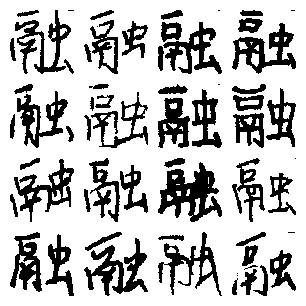 融融融融
融融融融
融融融融
融融融融